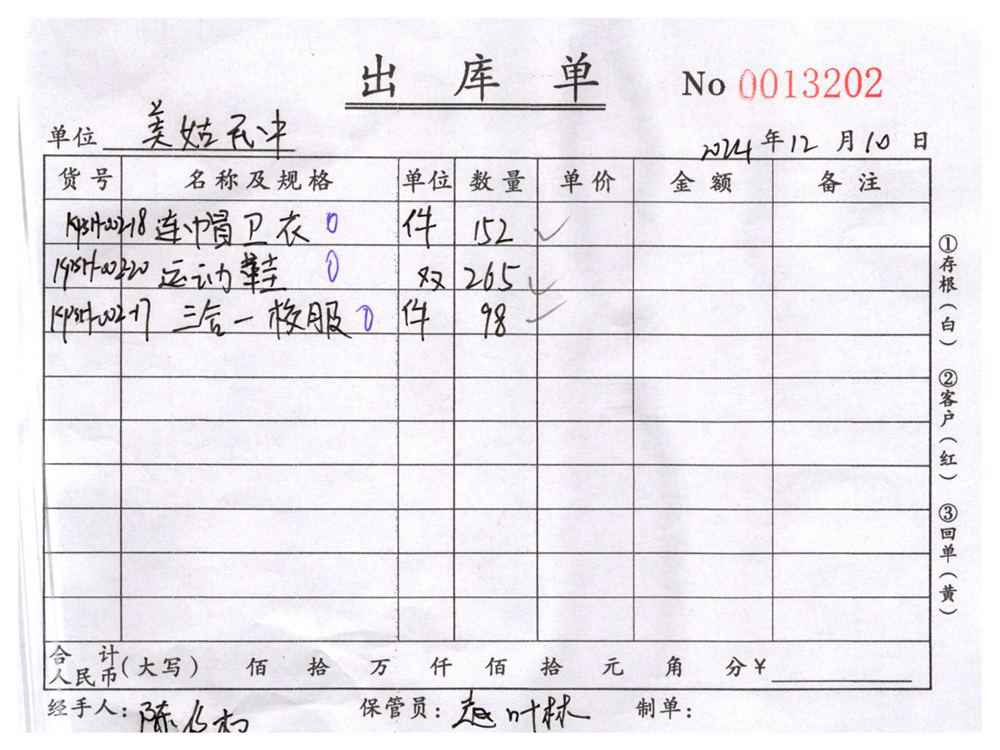 出 库 单 No 0013202
单位 美姑民中 2024 年 12 月 10 日
货号 名称及规格 单位 数量 单价 金额 备注
连帽卫衣 0 件 152
运动鞋 0 双 265
三合一校服 0 件 98
合计人民币 (大写) 佰 拾 万 仟 佰 拾 元 角 分 ¥
经手人: 保管员: 赵叶林 制单:
①存根(白) ②客户(红) ③回单(黄)